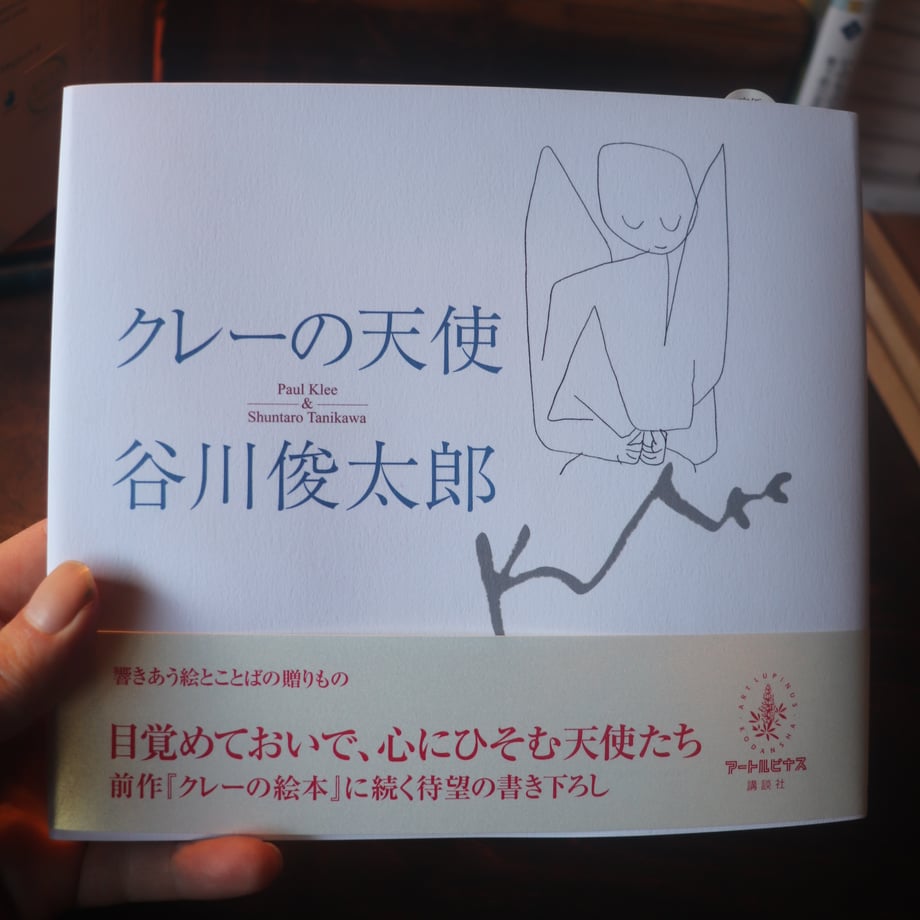 クレーの天使
Paul Klee
&
Shuntaro Tanikawa
谷川俊太郎
Klee
響きあう絵とことばの贈りもの
目覚めておいで、心にひそむ天使たち
前作『クレーの絵本』に続く待望の書き下ろし
ART LUPINUS
KODANSHA
アートルピナス
講談社